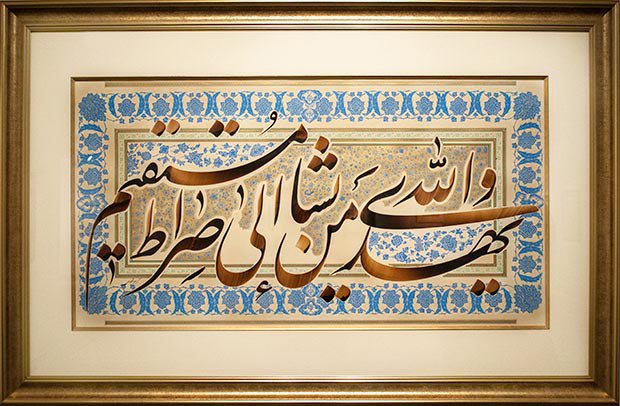 والله يهدي من يشاء إلى صراط مستقيم